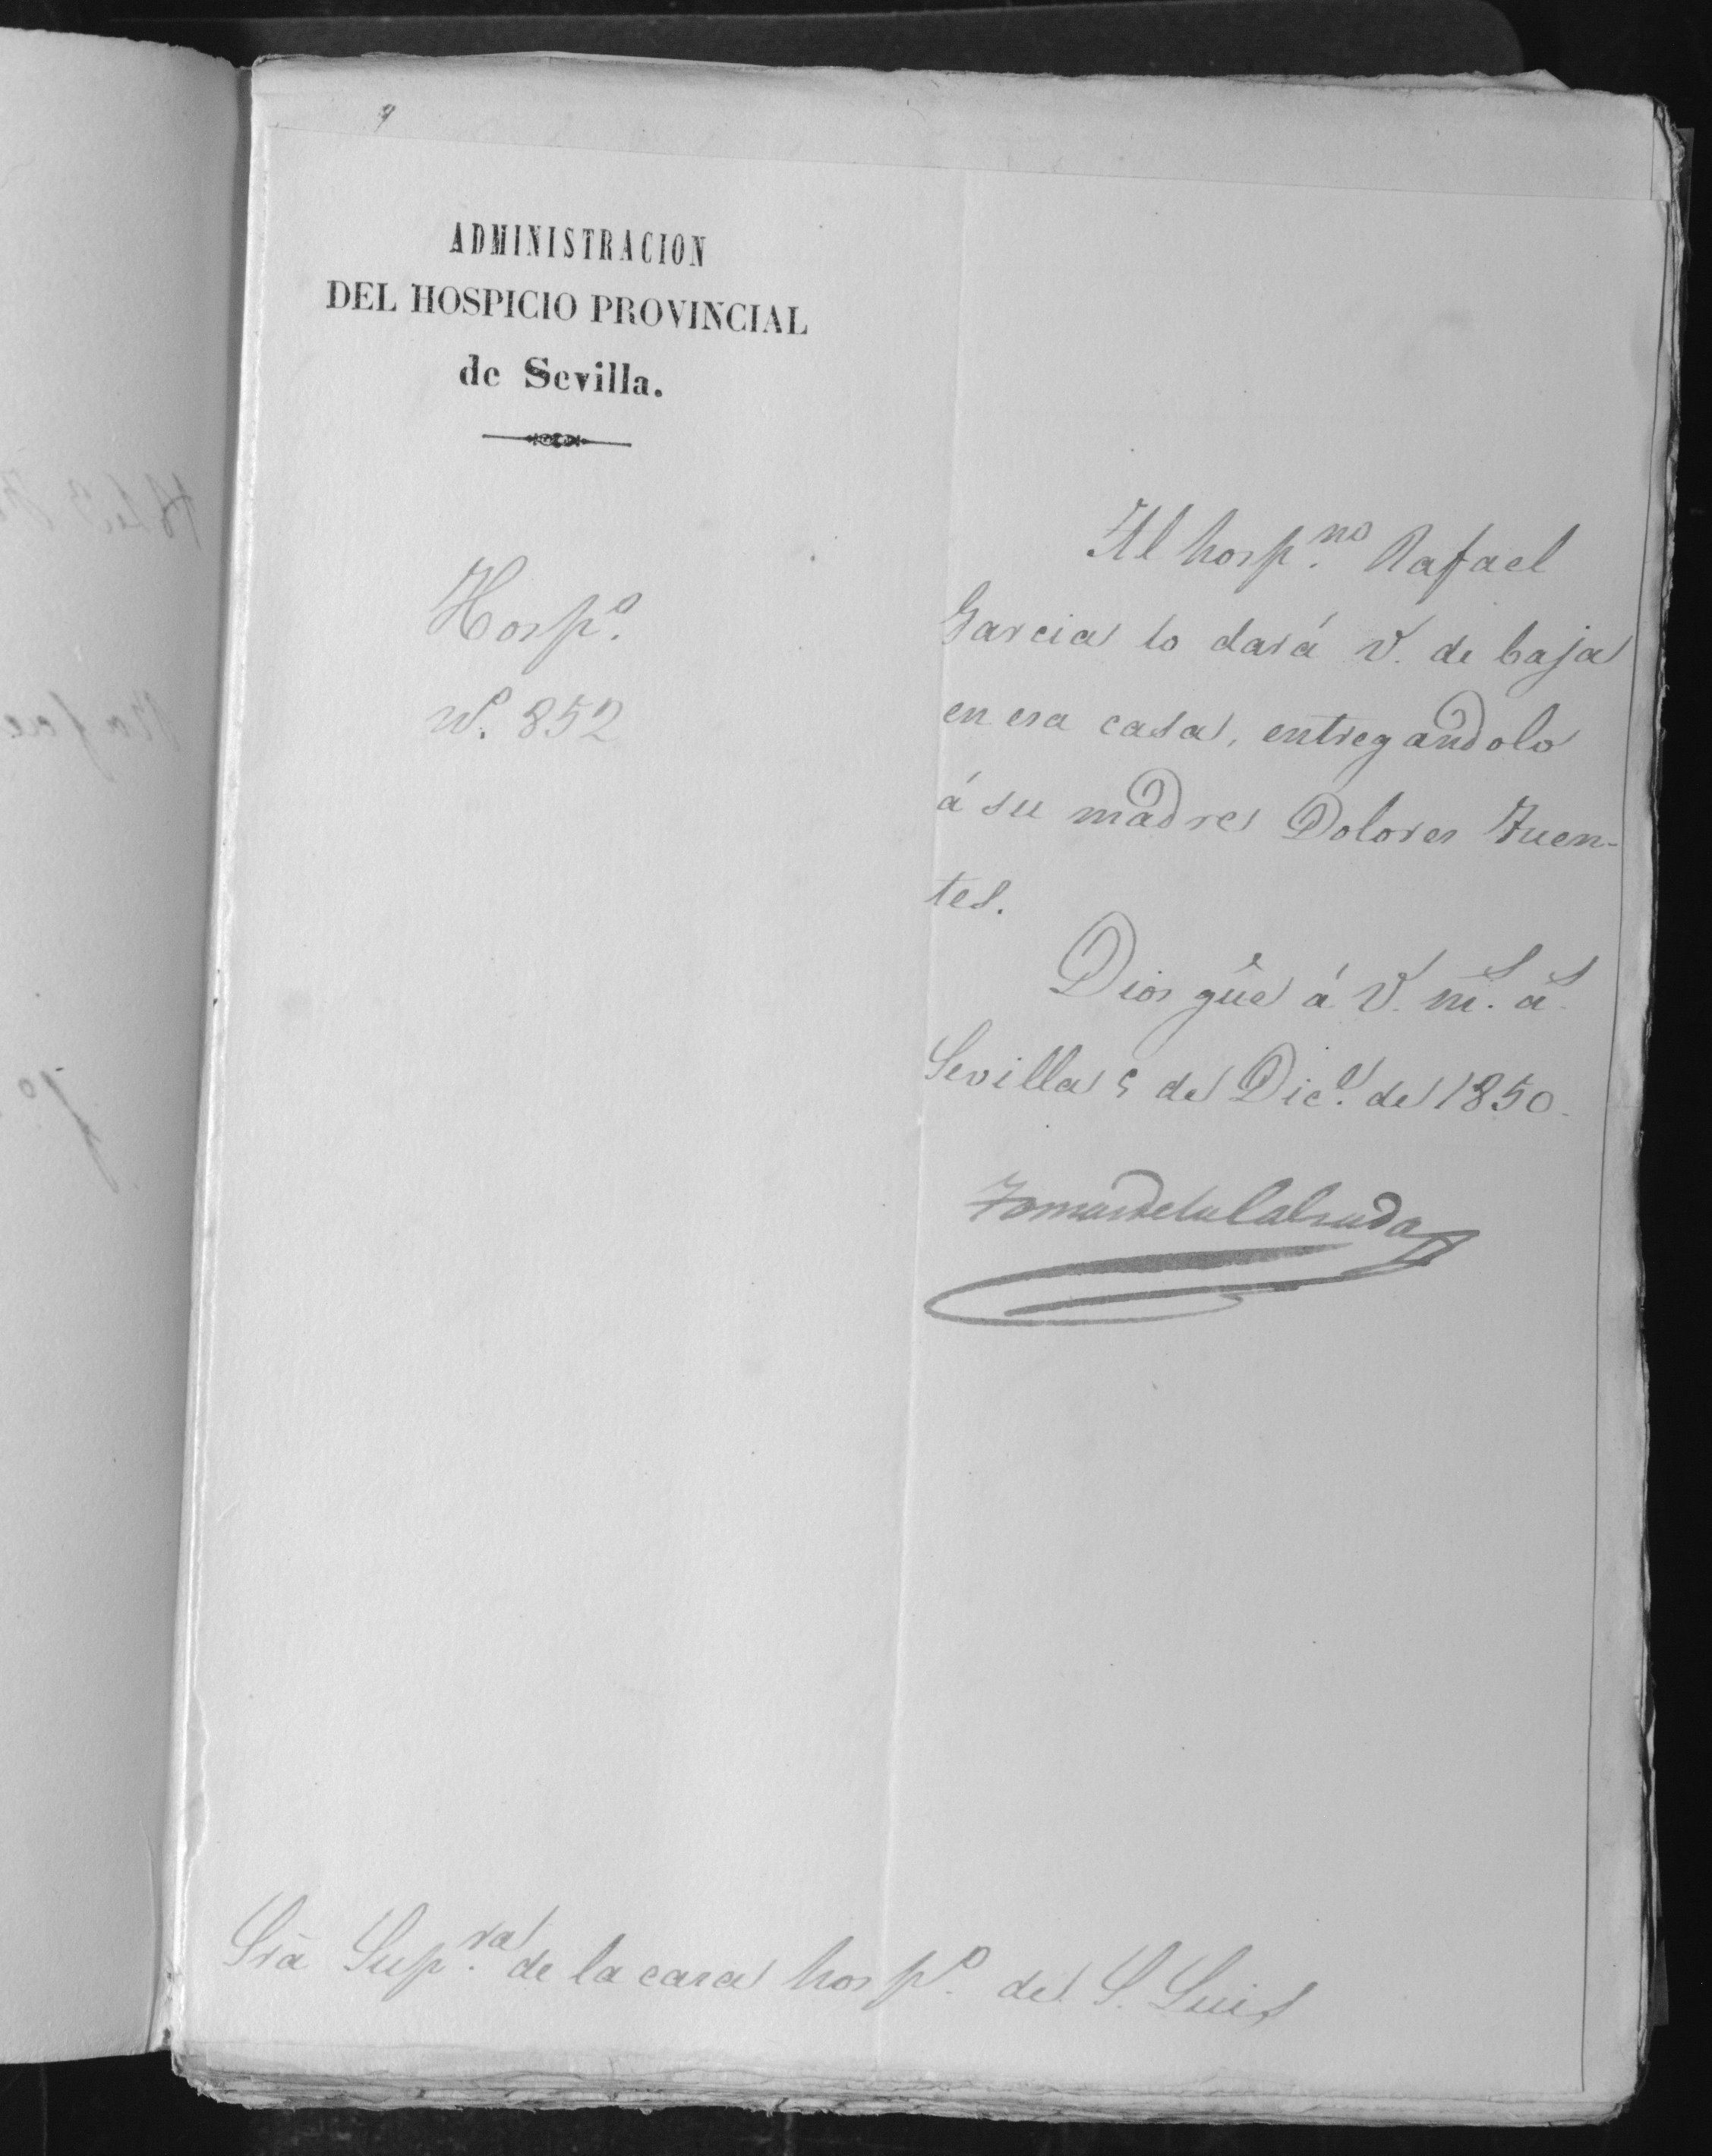 ADMINISTRACION
DEL HOSPICIO PROVINCIAL
de Sevilla.
Hosp.º
Nº. 852
Al hosp.no Rafael
Garcia lo dará V. de baja
en esa casa, entregandolo
á su madre Dolores Fuen-
tes.
Dios gûe á V. m.s a.s
Sevilla 5 de Dic.e de 1850.
Tomas de la Calzada
Sra Sup.ra de la casa hosp.º de S. Luis